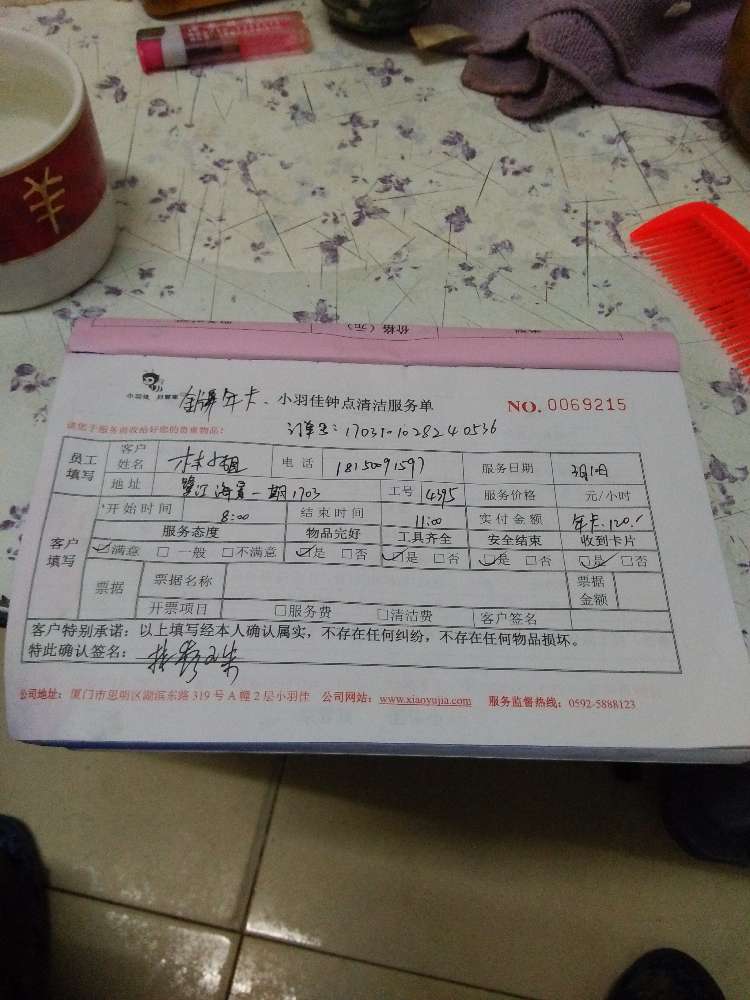 价格（元）
小羽佳 好管家 年卡、小羽佳钟点清洁服务单 NO. 0069215
请您于服务前收给好您的贵重物品： 订单号：1703101028240536
员工填写 客户姓名 林小姐 电话 18150091597 服务日期 3月10日
地址 鹭江海景一期1703 工号 4395 服务价格 元/小时
客户填写 开始时间 8:00 结束时间 11:00 实付金额 年卡.120.-
服务态度 物品完好 工具齐全 安全结束 收到卡片
☑满意 □一般 □不满意 ☑是 □否 ☑是 □否 ☑是 □否 ☑是 □否
票据 票据名称 票据金额
开票项目 □服务费 □清洁费 客户签名
客户特别承诺：以上填写经本人确认属实，不存在任何纠纷，不存在任何物品损坏。
特此确认签名：
公司地址：厦门市思明区湖滨东路 319 号 A 幢 2 层小羽佳 公司网站：www.xiaoyujia.com 服务监督热线：0592-5888123